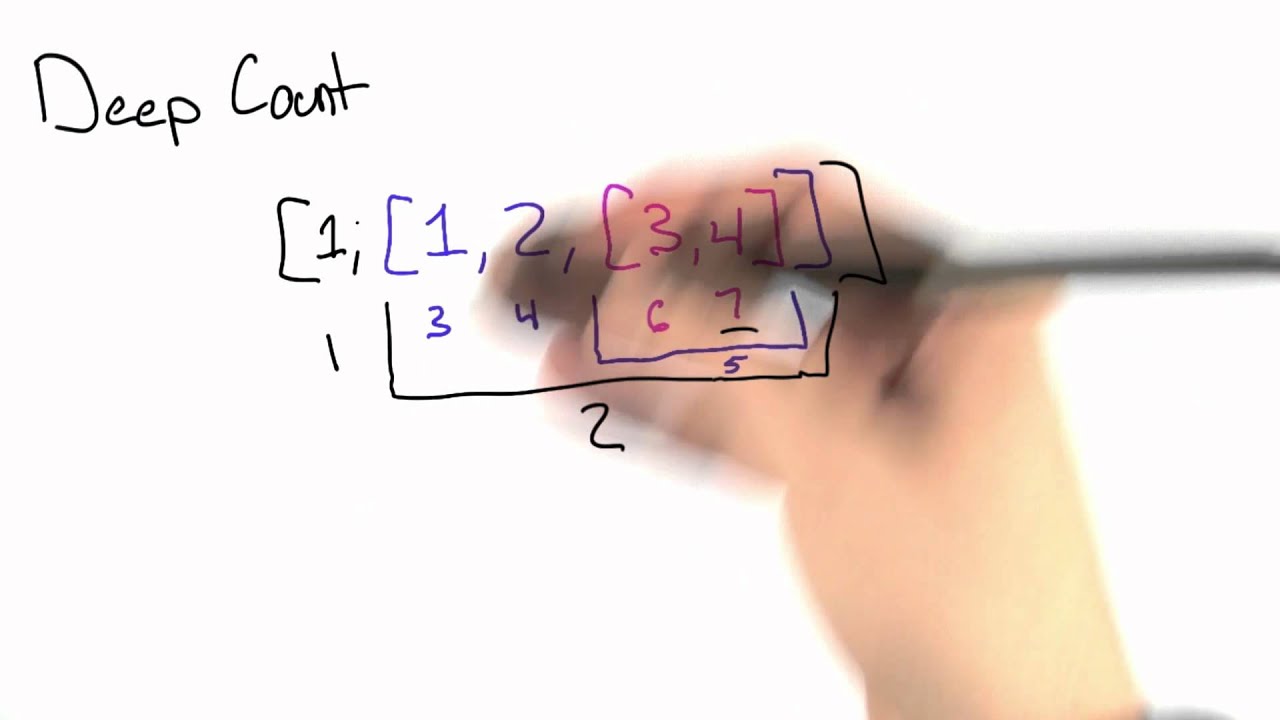 Deep Count
[1, [1, 2, [3, 4]]]
3 4 6 7
1 5
2